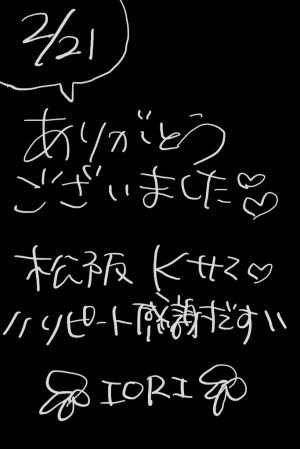 2/21
ありがとう
ございました♡♡
松阪 Kサマ♡
\\リピート感謝だす\\
IORI